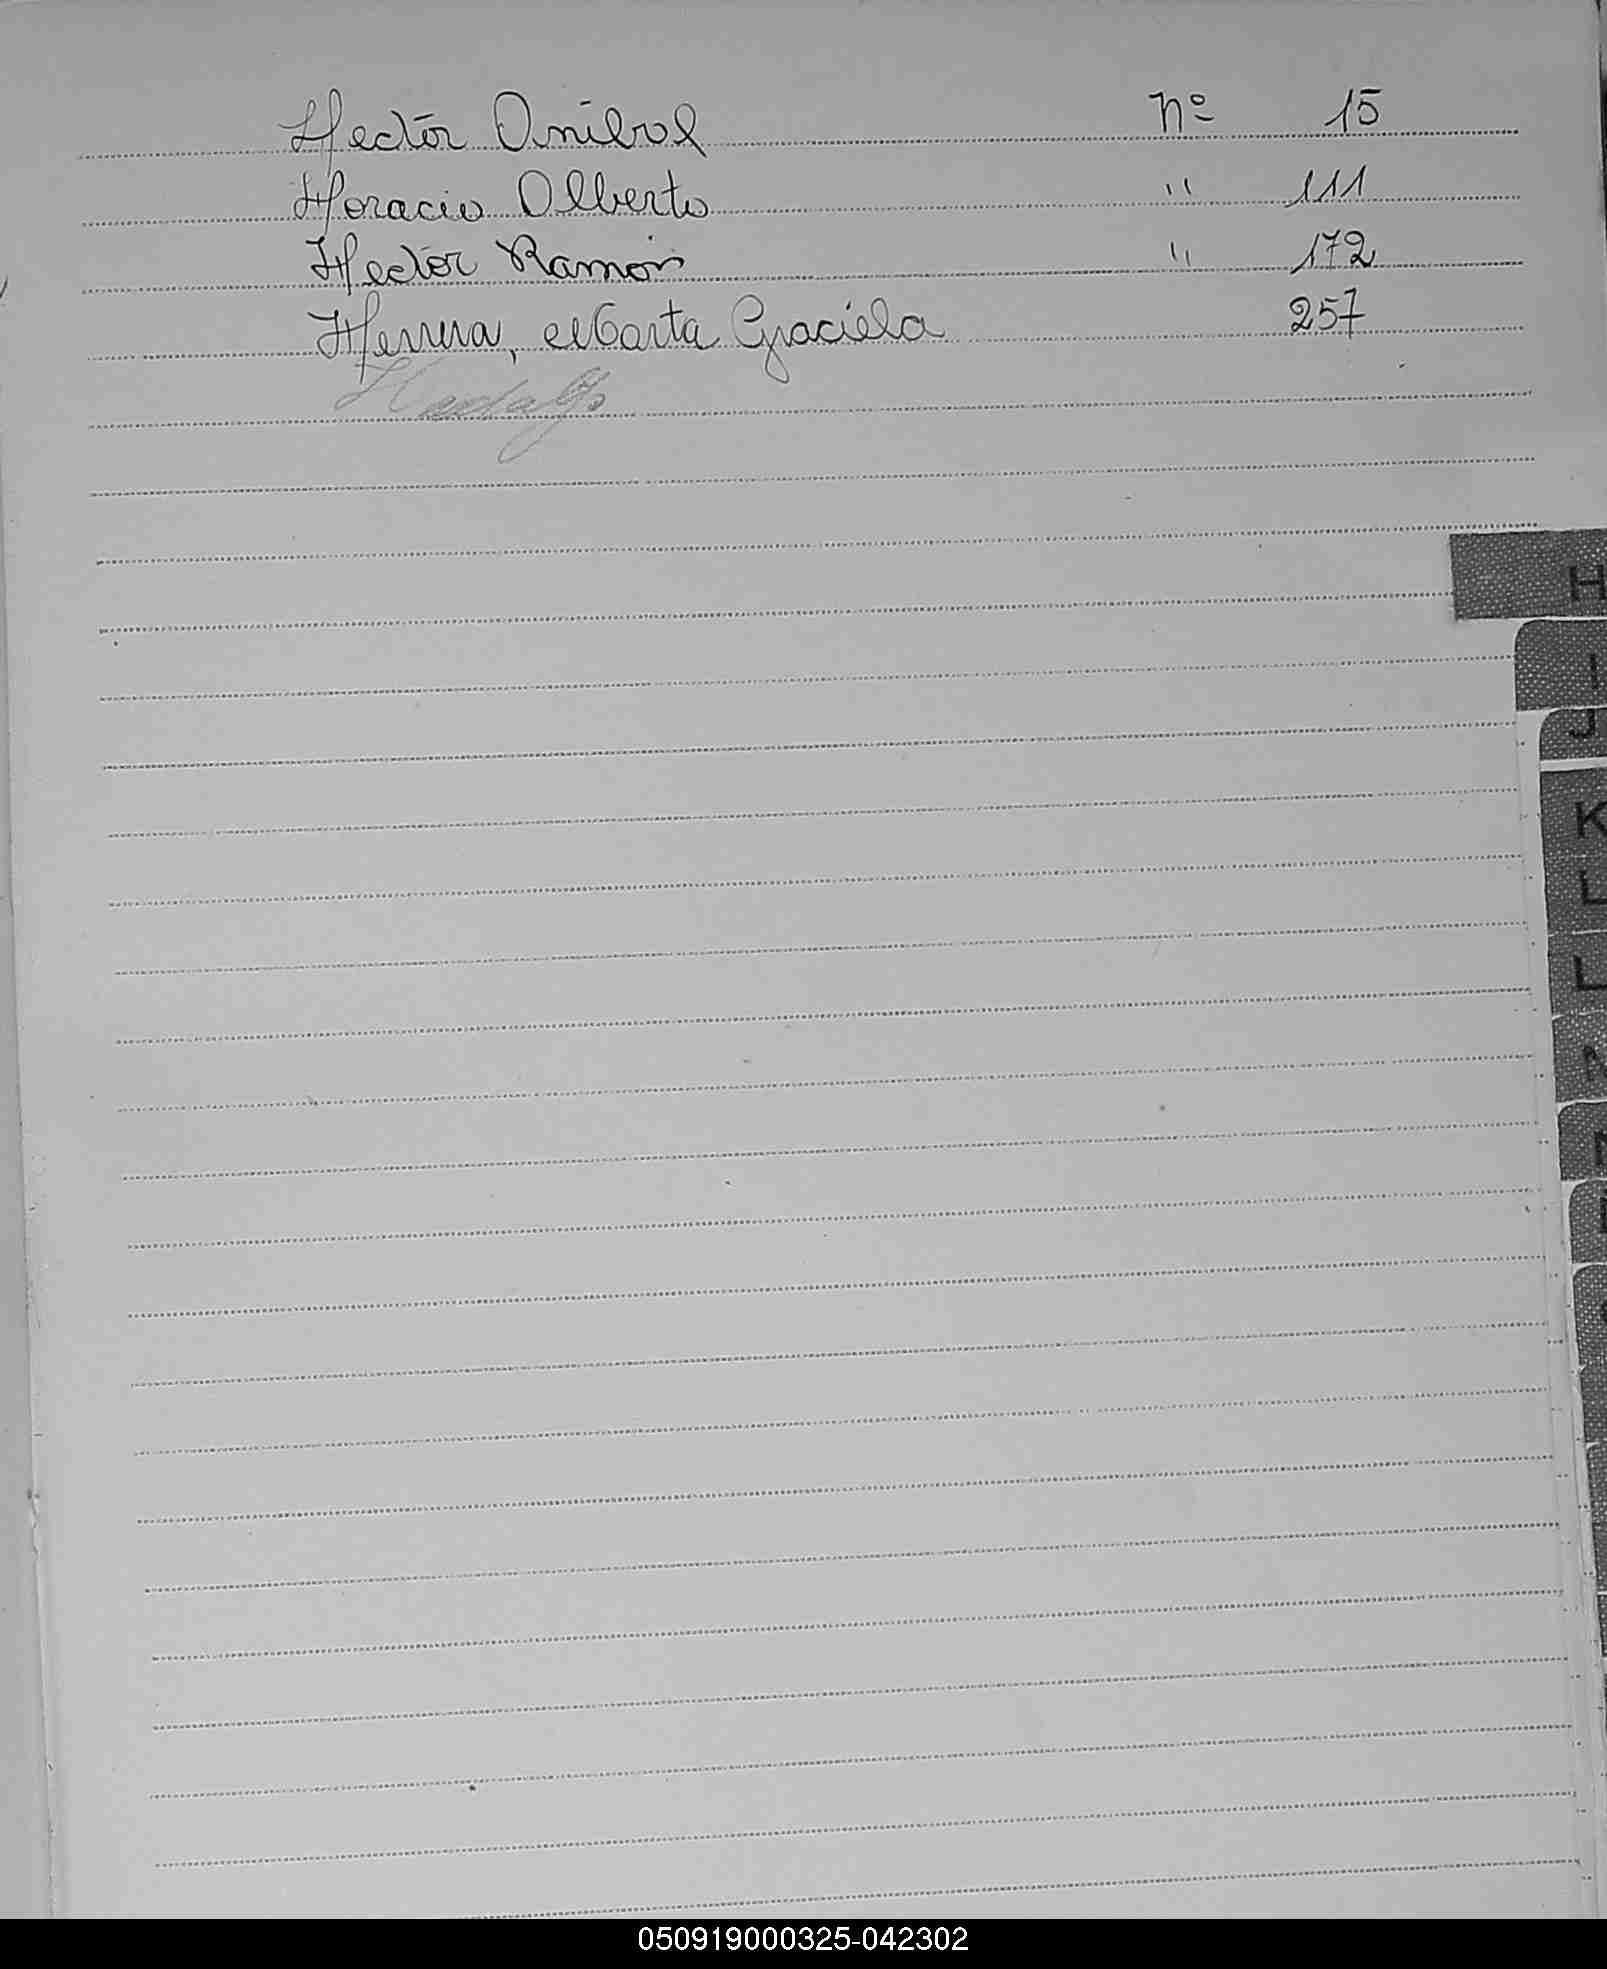 Hectór Anibal Nº 15
Horacio Alberto " 111
Hectór Ramón " 172
Herrera, Marta Graciela 257
H
I
J
K
L
L
050919000325-042302